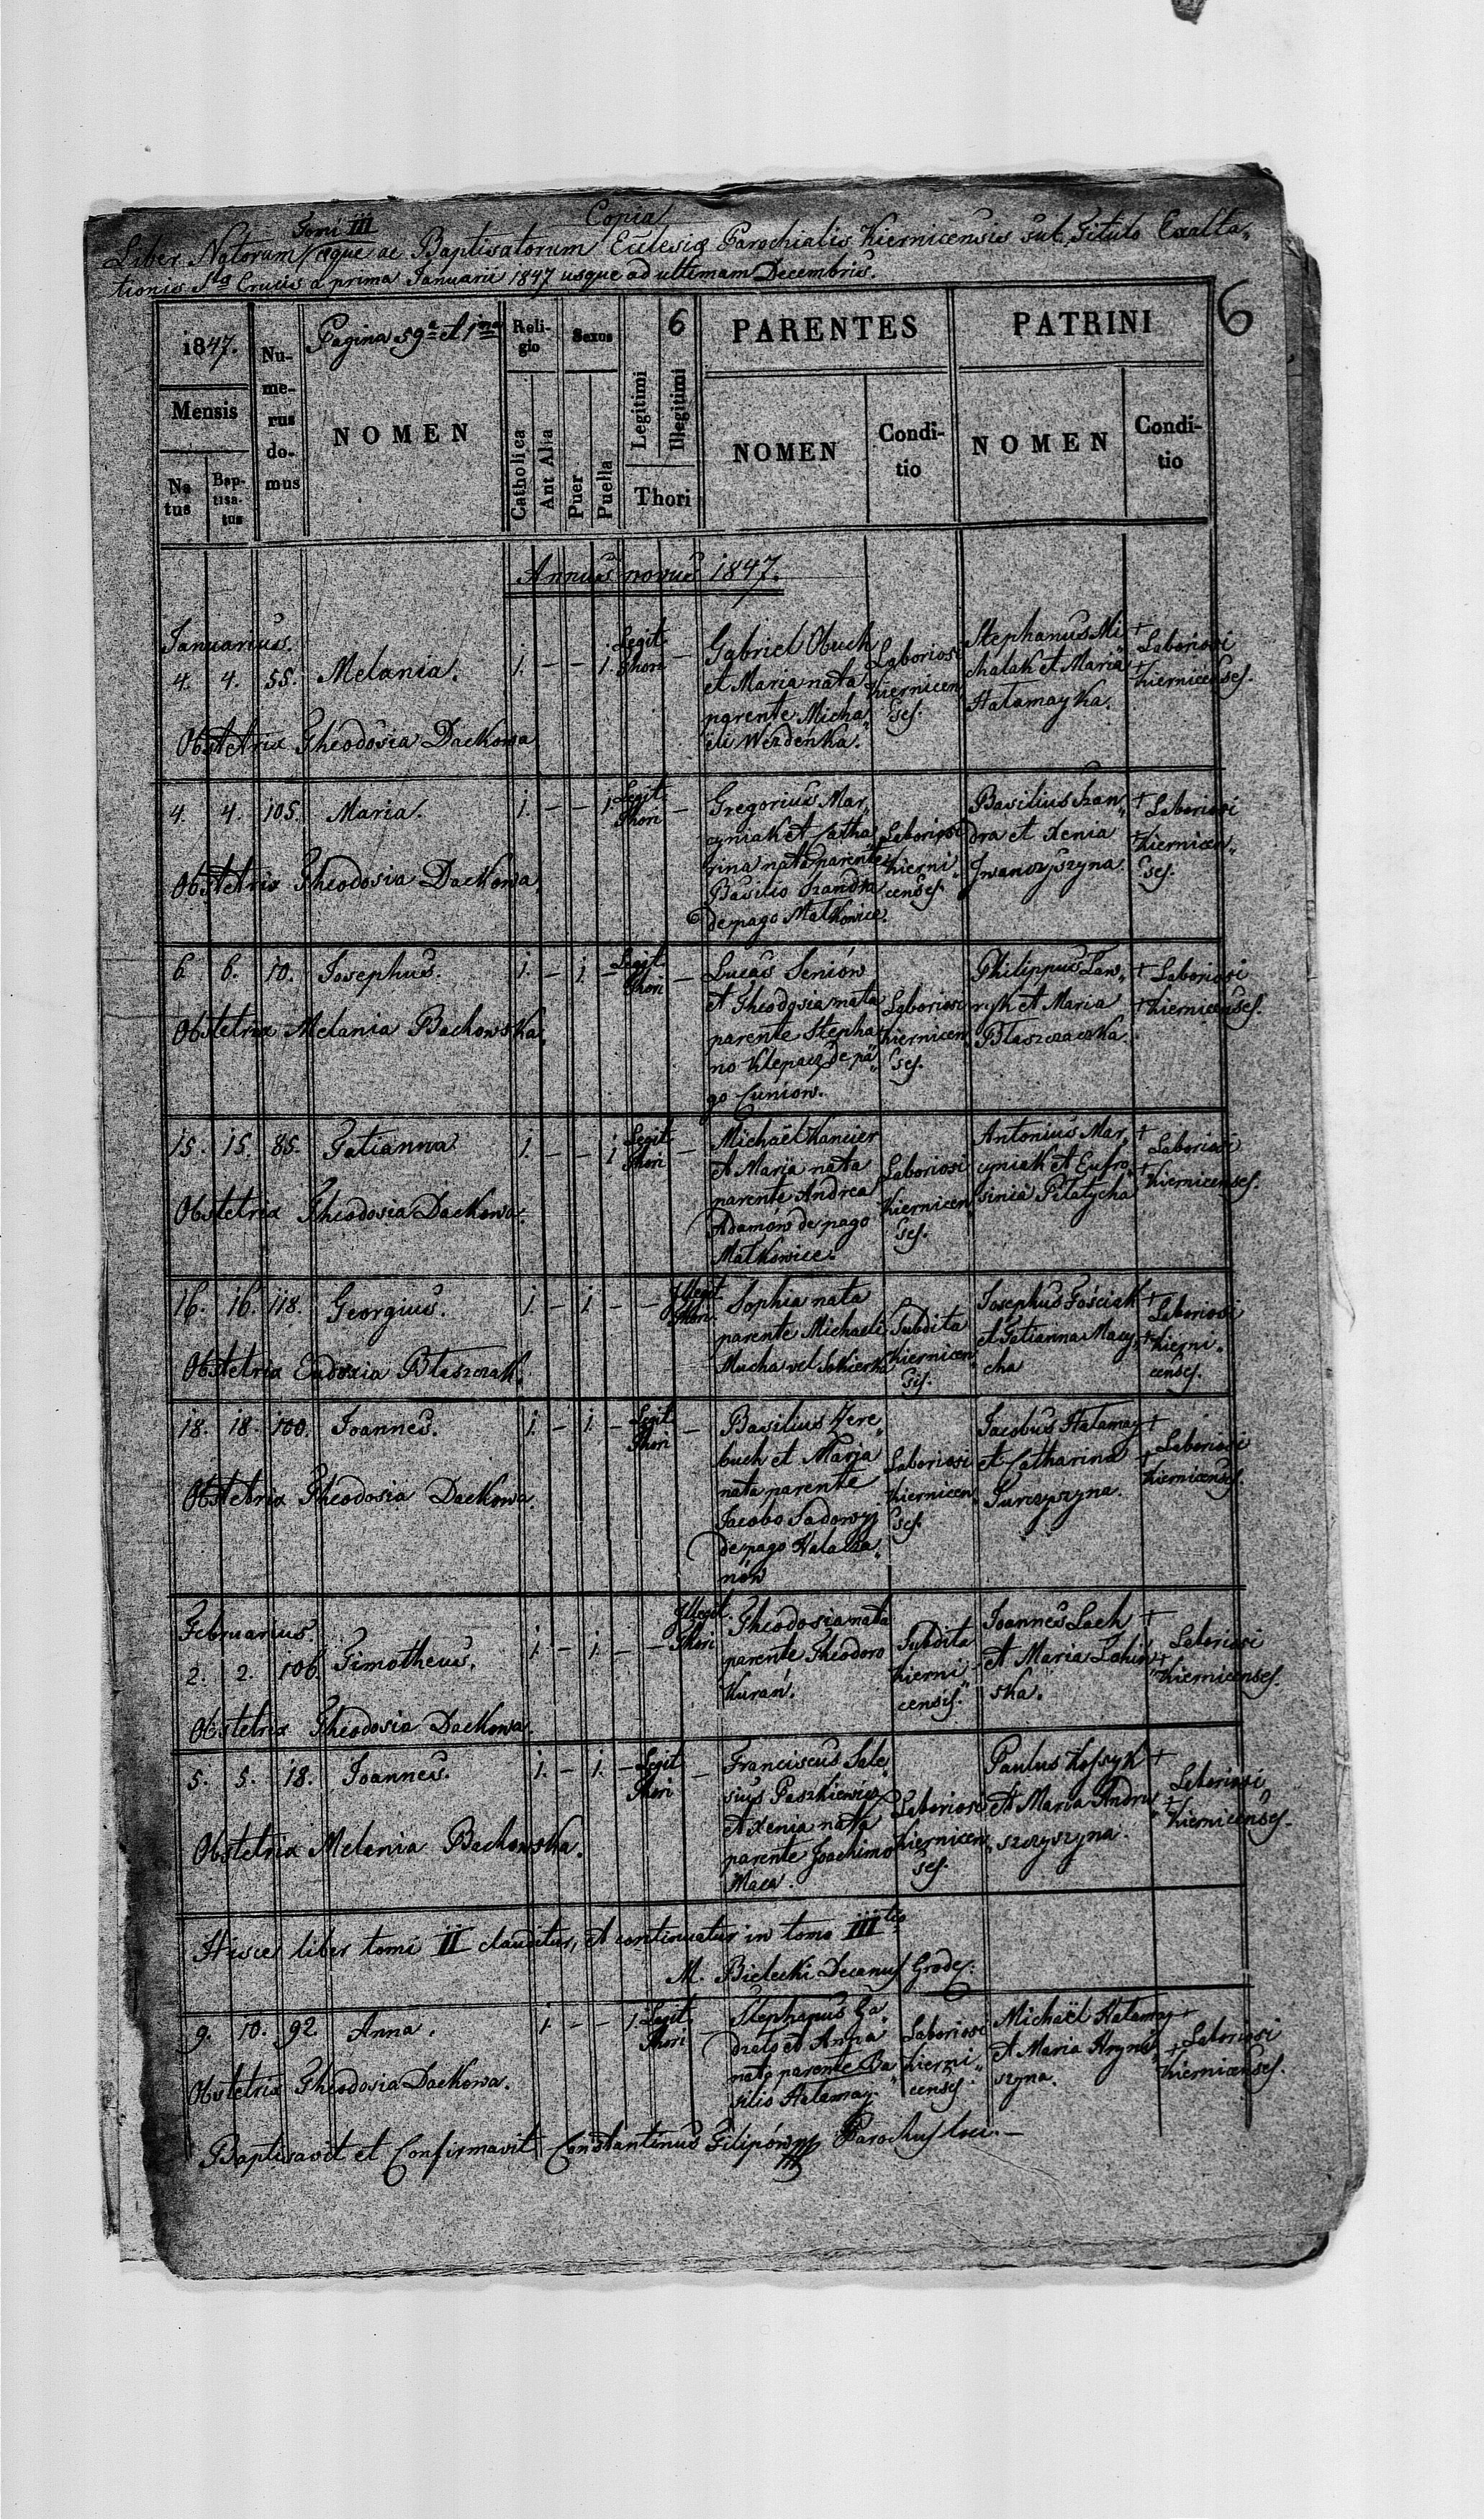 Copia
Tomi III
Liber Natorum æque ac Baptisatorum Ecclesiæ Parochialis Kiernicensis sub Titulo Exalta„
tionis Stæ Crucis a prima Januarii 1847 usque ad ultimam Decembris.
6
1847.
Mensis
Na
tus
Bap-
tisa-
tus
Nu-
me-
rus
do-
mus
Pagina 59a et 1ma
NOMEN
Reli-
gio
Catholica
Aut Alia
Sexus
Puer
Puella
6
Legitimi
Illegitimi
Thori
PARENTES
NOMEN
Condi-
tio
PATRINI
NOMEN
Condi-
tio
Annus novus 1847.
Januarius.
4. 4. 55. Melania. 1. – – 1. Legit. Thori –
Obstetrix Theodosia Dackowa
Gabriel Obuch
et Maria nata
parente Micha„
ëli Wezdenka.
Laboriosi
Kiernicen„
ses.
Stephanus Mi„
chalak et Maria
Hatamayka.
† Laboriosi
† Kiernicenses.
4. 4. 105. Maria. 1. – – 1. Legit. Thori –
Obstetrix Theodosia Dackowa.
Gregorius Mar„
cyniak et Catha
rina nata parente
Basilio Szandra
de pago Malkowice.
Laboriosi
Kierni„
censes.
Basilius Szan„
dra et Xenia
Iwanczyszyna.
† Laboriosi
† Kiernicen„
ses.
6. 6. 10. Josephus. 1. – 1. – Legit. Thori –
Obstetrix Melania Bachowska.
Lucas Seniów
et Theodosia nata
parente Stepha
no Klepacz de pa„
go Cuniow.
Laboriosi
Kiernicen„
ses.
Philippus Law„
ryk et Maria
Błaszczaczka.
† Laboriosi
† Kiernicenses.
15. 15. 85. Tatianna 1. – – 1 Legit. Thori –
Obstetrix Theodosia Dackowa.
Michaël Kancier
et Marÿa nata
parente Andrea
Adamów de pago
Malkowice.
Laboriosi
Kiernicen„
ses.
Antonius Mar„
cyniak et Eufro„
sinia Pilatycha
† Laboriosi
† Kiernicenses.
16. 16. 118. Georgius. 1. – 1. – – Illegit. Thori.
Obstetrix Eudoxia Błaszczak.
Sophia nata
parente Michaeli
Mucha vel Sokierka
Subdita
Kiernicen„
sis.
Josephus Fościak
et Tatianna Macy„
cha
† Laboriosi
† Kierni„
censes.
18. 18. 100. Joannes. 1. – 1. – Legit. Thori –
Obstetrix Theodosia Dackowa.
Basilius Zere„
buch et Maria
nata parente
Jacobo Sadowyj
de pago
nów
Laboriosi
Kiernicen„
ses.
Jacobus Hatamay
et Catharina
Turczyszyna.
† Laboriosi
† Kiernicenses.
Februarius.
2. 2. 106. Timotheus. 1. – 1. – – Illegit. Thori
Obstetrix Theodosia Dackowa.
Theodosia nata
parente Theodoro
Kurań.
Subdita
Kierni„
censis.
Joannes Lach
et Maria Lahiń„
ska.
† Laboriosi
† Kiernicenses.
5. 5. 18. Joannes. 1. – 1. – Legit Thori –
Obstetrix Melania Bachowska.
Franciscus Sale„
sius Paszkiewicz
et Xenia nata
parente Joachimo
Maca.
Laboriosi
Kiernicen„
ses.
Paulus Kossyk
et Maria Andru„
szczyszyna.
† Laboriosi
† Kiernicenses.
Hisce liber tomi II clauditur, et continuatur in tomo IIItio
M. Bielecki Decanus Grodec.
9. 10. 92. Anna. 1. – – 1. Legit. Thori –
Obstetrix Theodosia Dackowa.
Stephanus Ga„
dzalo et Anna
nata parente Ba„
silio Hatamay.
Laboriosi
Kierni„
censes.
Michaël Hatamay
et Maria Hryni„
szyna.
† Laboriosi
† Kiernicenses.
Baptisavit et Confirmavit Constantinus Filipów Parochus loci.–